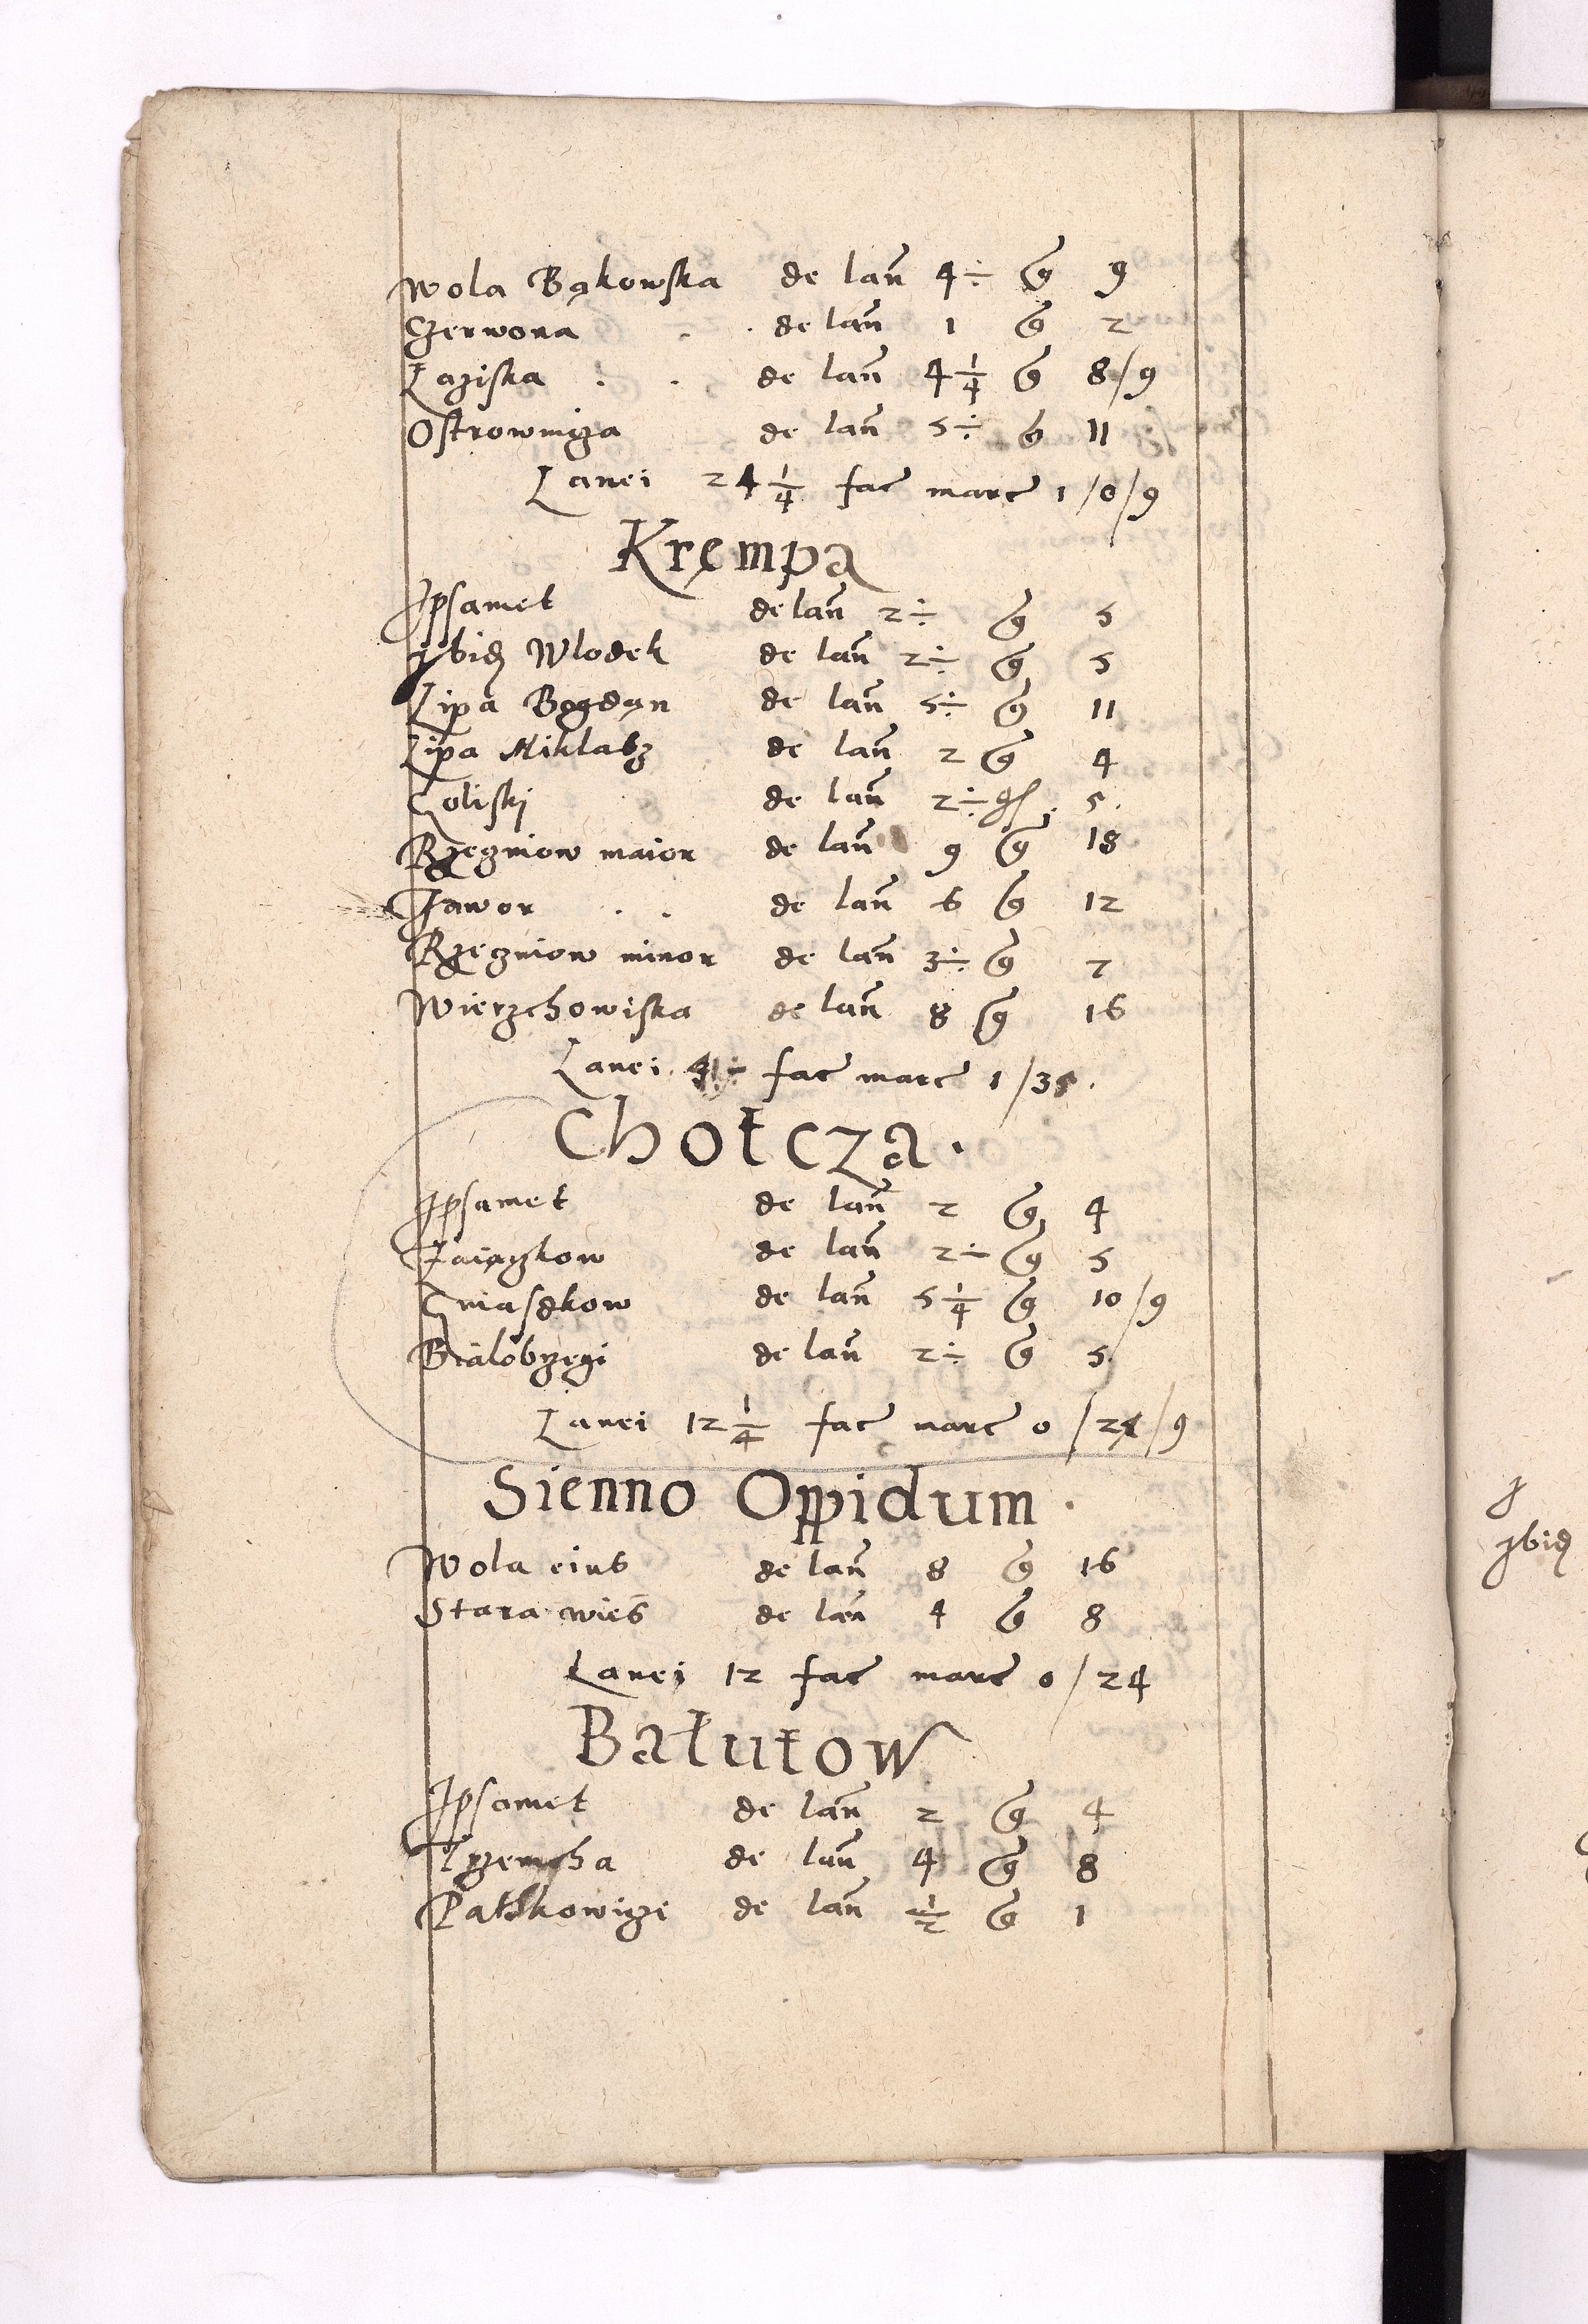 Wola Bąkowska de lan̄ 4÷ g 9
Czerwona . . de lan̄ 1 g 2
Laziska . . de lan̄ 4 1/4 g 8/9
Ostrownicza de lan̄ 5÷ g 11
Lanei 24 1/4 fac marc 1/0/9
Krempa
Jpsamet de lan̄ 2÷ g 5
Jbid Wlodek de lan̄ 2÷ g 5
Lipa Bogdan de lan̄ 5÷ g 11
Lipa Miklasz de lan̄ 2 g 4
Goliski de lan̄ 2÷ g 5.
Rzeczniow maior de lan̄ 9 g 18
Jawor . . de lan̄ 6 g 12
Rzeczniow minor de lan̄ 3÷ g 7
Wierzchowiska de lan̄ 8 g 16
Lanei fac marc 1/35.
Chotcza.
Jpsamet de lan̄ 2 g 4
Jaiączkow de lan̄ 2÷ g 5
Gniasękow de lan̄ 5 1/4 g 10/9
Bialobrzegi de lan̄ 2÷ g 5
Lanei 12 1/4 fac marc 0/24/9
Sienno Oppidum.
Wola eius de lan̄ 8 g 16
Stara wies̄ de lan̄ 4 g 8
Lanei 12 fac marc 0/24
Bałutow
Jpsamet de lan̄ 2 g 4
Trzemcha de lan̄ 4 g 8
Patkowicze de lan̄ 1/2 g 1
Jbid